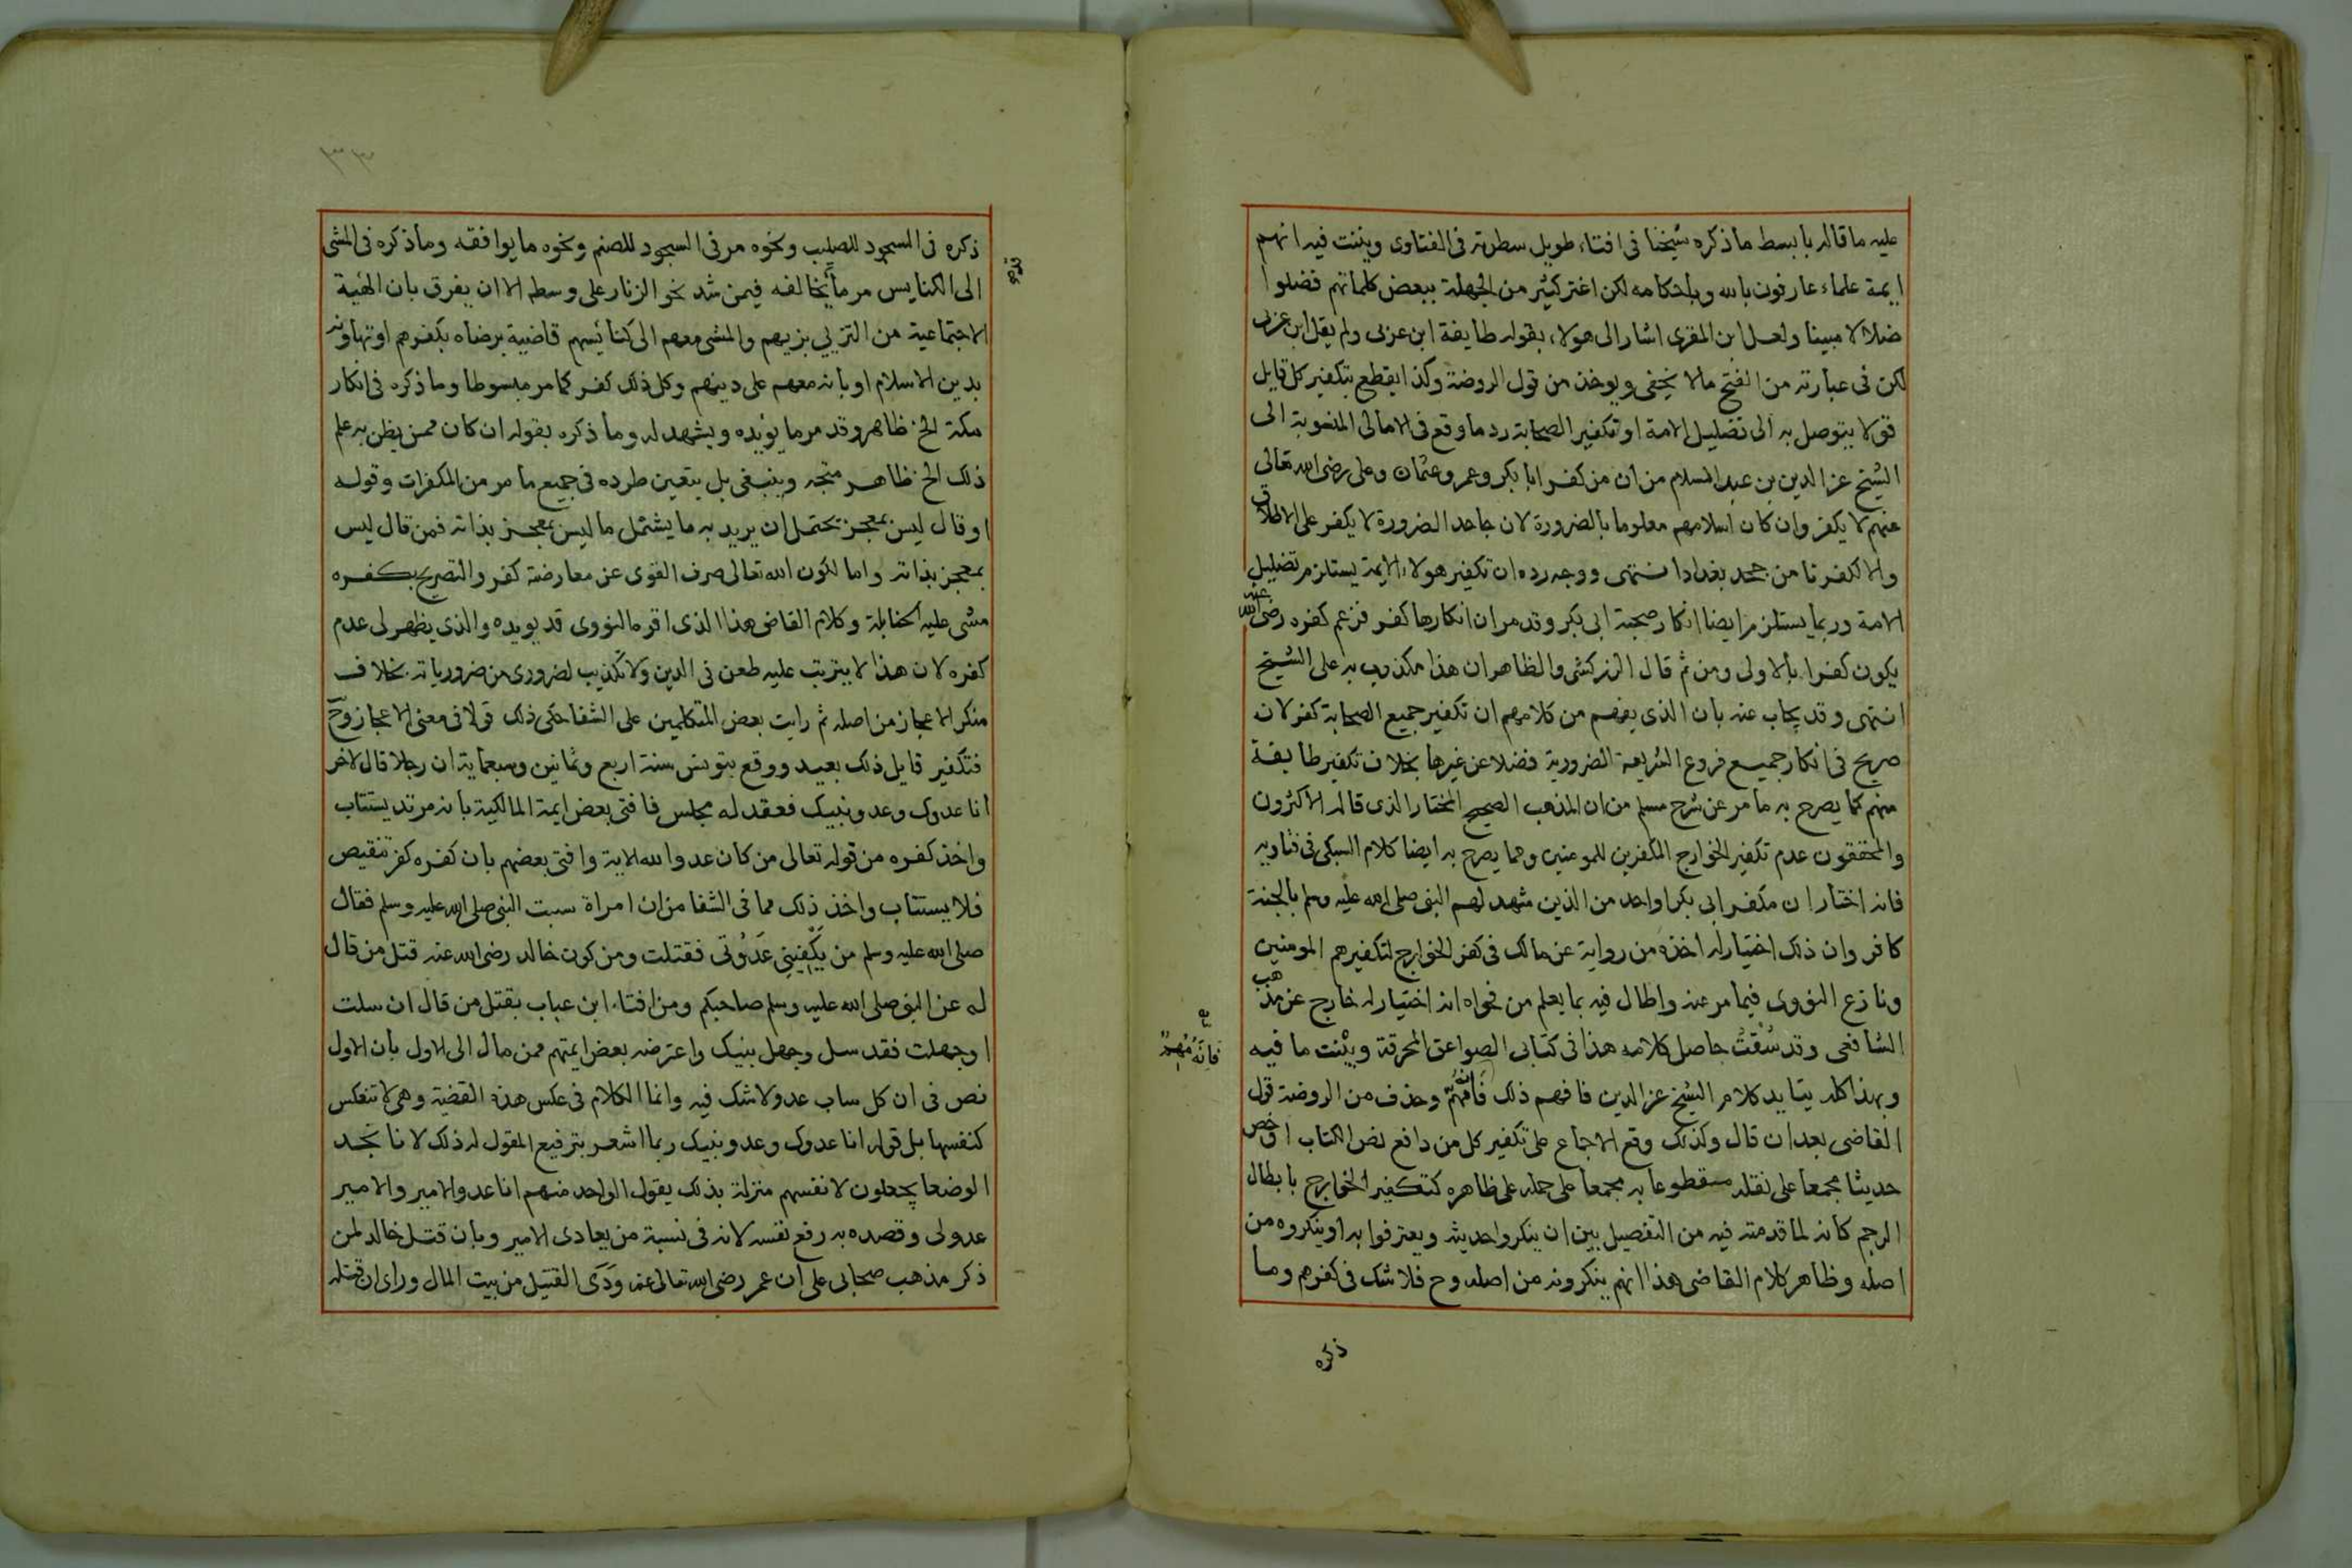 عليه ما قاله بابسط ما ذكره شيخنا فى افتاء طويل سطرته فى الفتاوى وبينت فيه انهم
ايمة علماء عارفون بالله وباحكامه لكن اغتر كثير من الجهلة ببعض كلماتهم فضلوا
ضلالا مبينا ولعل ابن المقرى اشار الى هولاء بقوله طايفة ابن عربى ولم يقل ابن عربى
لكن فى عبارته من القبح مالا يخفى ويوخذ من قول الروضة وكذا يقطع بتكفير كل قايل
قولا يتوصل به الى تضليل الامة او تكفير الصحابة رد ما وقع فى الامالى المنسوبة الى
الشيخ عز الدين بن عبد السلام من ان من كفر ابا بكر وعمر وعثمان وعلى رضى الله تعالى
عنهم لا يكفر وان كان اسلامهم معلوما بالضرورة لان جاحد الضرورة لا يكفر على الاطلاق
والا لكفرنا من جحد بغداد انتهى ووجه رده ان تكفير هولاء الايمة يستلزم تضليل
الامة وربما يستلزم ايضا انكار صحبة ابى بكر وقد مر ان انكارها كفر فزعم كفره رضى الله عنه
يكون كفرا بالاولى ومن ثم قال الزركشى والظاهر ان هذا مكذوب به على الشيخ
انتهى وقد يجاب عنه بان الذى يفهم من كلامهم ان تكفير جميع الصحابة كفر لانه
صريح فى انكار جميع فروع الشريعة الضرورية فضلا عن غيرها بخلاف تكفير طايفة
منهم كما يصرح به ما مر عن شرح مسلم من ان المذهب الصحيح المختار الذى قاله الاكثرون
والمحققون عدم تكفير الخوارج المكفرين للمومنين ومما يصرح به ايضا كلام السبكى فى فتاويه
فانه اختار ان مكفر ابى بكر او احد من الذين شهد لهم النبى صلى الله عليه وسلم بالجنة
كافر وان ذلك اختيار له اخذه من رواية عن مالك فى كفر الخوارج لتكفيرهم المومنين
ونازع النووى فيما مر عنه واطال فيه بما يعلم من فحواه انه اختيار له خارج عن مذهب
الشافعى وقد سُقتُ حاصل كلامه هذا فى كتابى الصواعق المحرقة وبيّنت ما فيه
فانه مهم
وبهذا كله يتايد كلام الشيخ عز الدين فافهم ذلك وحذف من الروضة قول
القاضى بعد ان قال وكذلك وقع الاجماع على تكفير كل من دافع نص الكتاب او خص
حديثا مجمعا على نقله مقطوعا به مجمعا على حمله على ظاهره كتكفير الخوارج بابطال
الرجم كانه لما قدمته فيه من التفصيل بين ان ينكروا حديثه ويعترفوا به او ينكروه من
اصله وظاهر كلام القاضى هذا انهم ينكرونه من اصله وح فلا شك فى كفرهم وما
ذكره
٣٣
ذكره فى السجود للصليب ونحوه مر فى السجود للصنم ونحوه ما يوافقه وما ذكره فى المشى
الى الكنايس مر ما يخالفه فيمن شد نحو الزنار على وسطه الا ان يفرق بان الهيئة
الاجتماعية من التزيي بزيهم والمشى معهم الى كنائسهم قاضية برضاه بكفرهم او تهاونه
بدين الاسلام او بانه معهم على دينهم وكل ذلك كفر كما مر مبسوطا وما ذكره فى انكار
مكة الخ ظاهر وقد مر ما يؤيده ويشهد له وما ذكره بقوله ان كان ممن يظن به علم
ذلك الخ ظاهر متجه وينبغى بل يتعين طرده فى جميع ما مر من المكفرات وقوله
او قال ليس بمعجز يحتمل ان يريد به ما يشتمل ما ليس بمعجز بذاته فمن قال ليس
بمعجز بذاته وانما لكون الله تعالى صرف القوى عن معارضته كفر والتصريح بكفره
مشى عليه الحنابلة وكلام القاضى هذا الذى اقره النووى قد يويده والذى يظهر لى عدم
كفره لان هذا لا يترتب عليه طعن فى الدين ولا تكذيب لضرورى من ضرورياته بخلاف
منكر الاعجاز من اصله ثم رايت بعض المتكلمين على الشفا حكى ذلك قولا فى معنى الاعجاز وح
فتكفير قايل ذلك بعيد ووقع بتونس سنة اربع وثمانين وسبعماية ان رجلا قال لاخر
انا عدوك وعدو نبيك فعقد له مجلس فافتى بعض ايمة المالكية بانه مرتد يستتاب
واخذ كفره من قوله تعالى من كان عدوا لله الاية وافتى بعضهم بان كفره كفر تنقيص
فلا يستتاب واخذ ذلك مما فى الشفا من ان امراة سبت النبى صلى الله عليه وسلم فقال
صلى الله عليه وسلم من يَكْفِينى عَدُوّتى فقتلت ومن كون خالد رضى الله عنه قتل من قال
له عن النبى صلى الله عليه وسلم صاحبكم ومن افتاء ابن عباب بقتل من قال ان سلت
او جهلت فقد سل وجهل نبيك واعترضه بعض ايمتهم ممن مال الى الاول بان الاول
نص فى ان كل ساب عدو لا شك فيه وانما الكلام فى عكس هذه القضية وهى لا تنعكس
كنفسها بل قوله انا عدوك وعدو نبيك ربما اشعر بترفيع المقول له ذلك لانا نجد
الوضعا يجعلون لانفسهم منزلة بذلك يقول الواحد منهم انا عدو الامير والامير
عدولى وقصده به رفع نفسه لانه فى نسبة من يعادى الامير وبان قتل خالد لمن
ذكر مذهب صحابى على ان عمر رضى الله تعالى عنه وَدَى القتيل من بيت المال وراى ان قتله